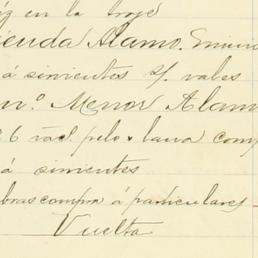 en la troje
ienda Alamo.
á sirvientes s/. vales
n.º Menor Alam
6 pelo lana comp
á sirvientes
bras compra á particulares
Vuelta